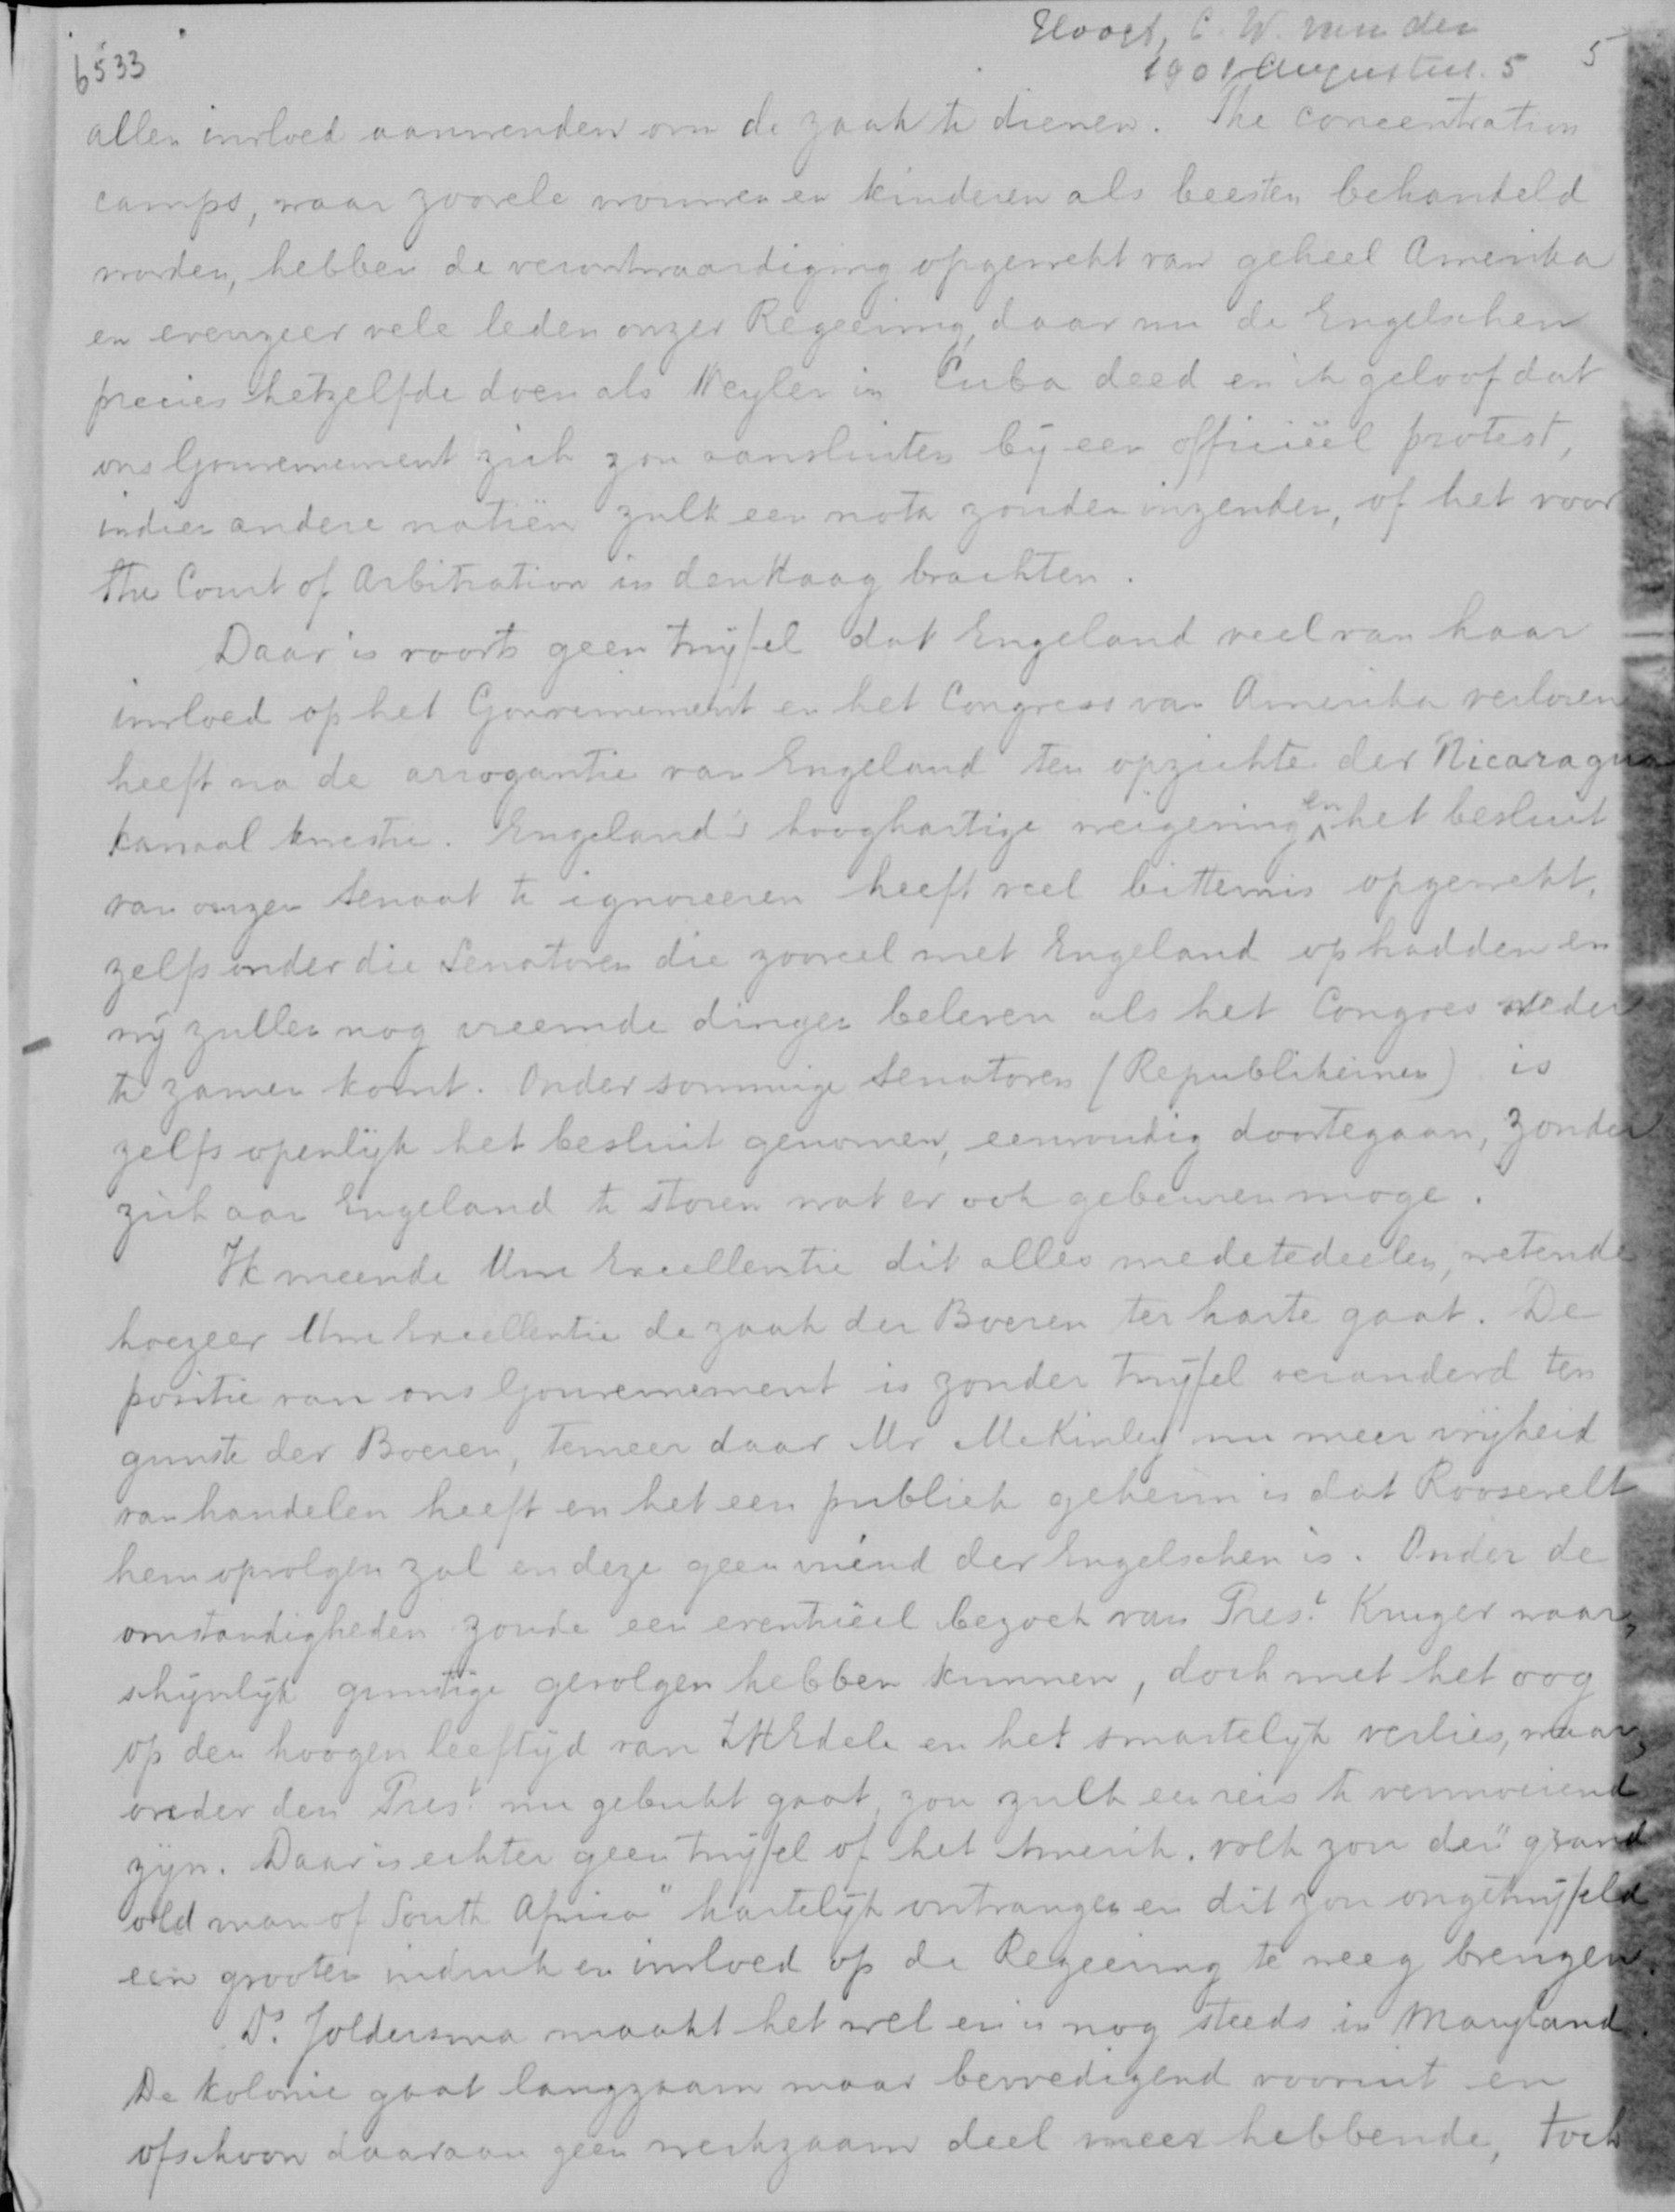 Hoogt, C. W. van der
6533
1901 Augustus. 5
5
allen invloed aanwenden om de zaak te dienen. The concentration
camps, waar zoovele vrouwen en kinderen als beesten behandeld
worden, hebben de verontwaardiging opgewekt van geheel Amerika
en evenzeer vele leden onzer Regeering, daar nu de Engelschen
precies hetzelfde doen als Weyler in Cuba deed en ik geloof dat
ons Gouvernement zich zou aansluiten bij een officiëel protest,
indien andere natiën zulk een nota zouden inzenden, of het voor
the Court of Arbitration in den Haag brachten.
Daar is voorts geen twijfel dat Engeland veel van haar
invloed op het Gouvernement en het Congress van Amerika verloren
heeft na de arrogantie van Engeland ten opzichte der Nicaragua
kanaal kwestie. Engeland's hooghartige weigering en het besluit
van onzen Senaat te ignoreeren heeft veel bitternis opgewekt,
zelfs onder die Senatoren die zooveel met Engeland op hadden en
wij zullen nog vreemde dingen beleven als het Congres weder
te zamen komt. Onder sommige Senatoren (Republikeinen) is
zelfs openlijk het besluit genomen, eenvoudig doortegaan, zonder
zich aan Engeland te storen wat er ook gebeuren moge.
Ik meende Uwe Excellentie dit alles medetedeelen, wetende
hoezeer Uwe Excellentie de zaak der Boeren ter harte gaat. De
positie van ons Gouvernement is zonder twijfel veranderd ten
gunste der Boeren, temeer daar Mr McKinley nu meer vrijheid
van handelen heeft en het een publiek geheim is dat Roosevelt
hem opvolgen zal en deze geen vriend der Engelschen is. Onder de
omstandigheden zoude een eventuëel bezoek van Prest. Kruger waar„
schijnlijk gunstige gevolgen hebben kunnen, doch met het oog
op den hoogen leeftijd van ZHEdele en het smartelijk verlies, waar„
onder den Prest. nu gebukt gaat, zou zulk een reis te vermoeiend
zijn. Daar is echter geen twijfel of het Amerik. volk zou den "grand
old man of South Africa" hartelijk ontvangen en dit zou ongetwijfeld
een grooten indruk en invloed op de Regeering te weeg brengen.
Ds. Joldersma maakt het wel en is nog steeds in Maryland.
De kolonie gaat langzaam maar bevredigend vooruit en
ofschoon daaraan geen werkzaam deel meer hebbende, toch